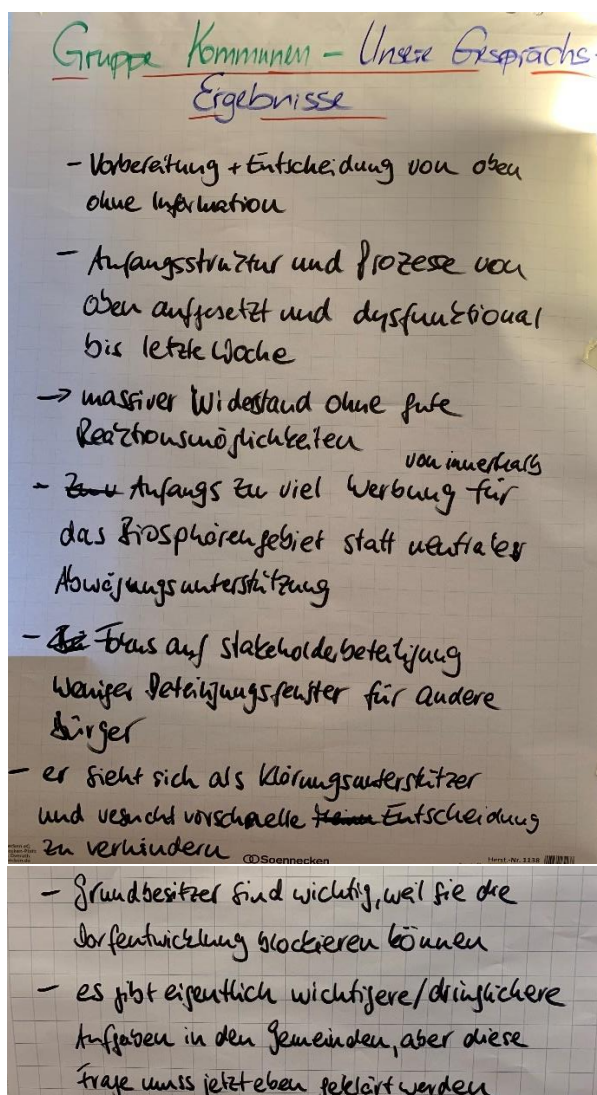 Gruppe Kommunen – Unsere Gesprächs-
Ergebnisse
- Vorbereitung + Entscheidung von oben
ohne Information
- Anfangsstruktur und Prozesse von
oben aufgesetzt und dysfunktional
bis letzte Woche
→ massiver Widerstand ohne gute
Reaktionsmöglichkeiten
von innerhalb
- Anfangs zu viel Werbung für
das Biosphärengebiet statt neutraler
Abwägungsunterstützung
- Fokus auf Stakeholderbeteiligung
weniger Beteiligungsfenster für andere
Bürger
- er sieht sich als Klärungsunterstützer
und versucht vorschnelle Entscheidung
zu verhindern
Soennecken
Herst.-Nr. 1138
- Grundbesitzer sind wichtig, weil sie die
Dorfentwicklung blockieren können
- es gibt eigentlich wichtigere/dringlichere
Aufgaben in den Gemeinden, aber diese
Frage muss jetzt eben geklärt werden